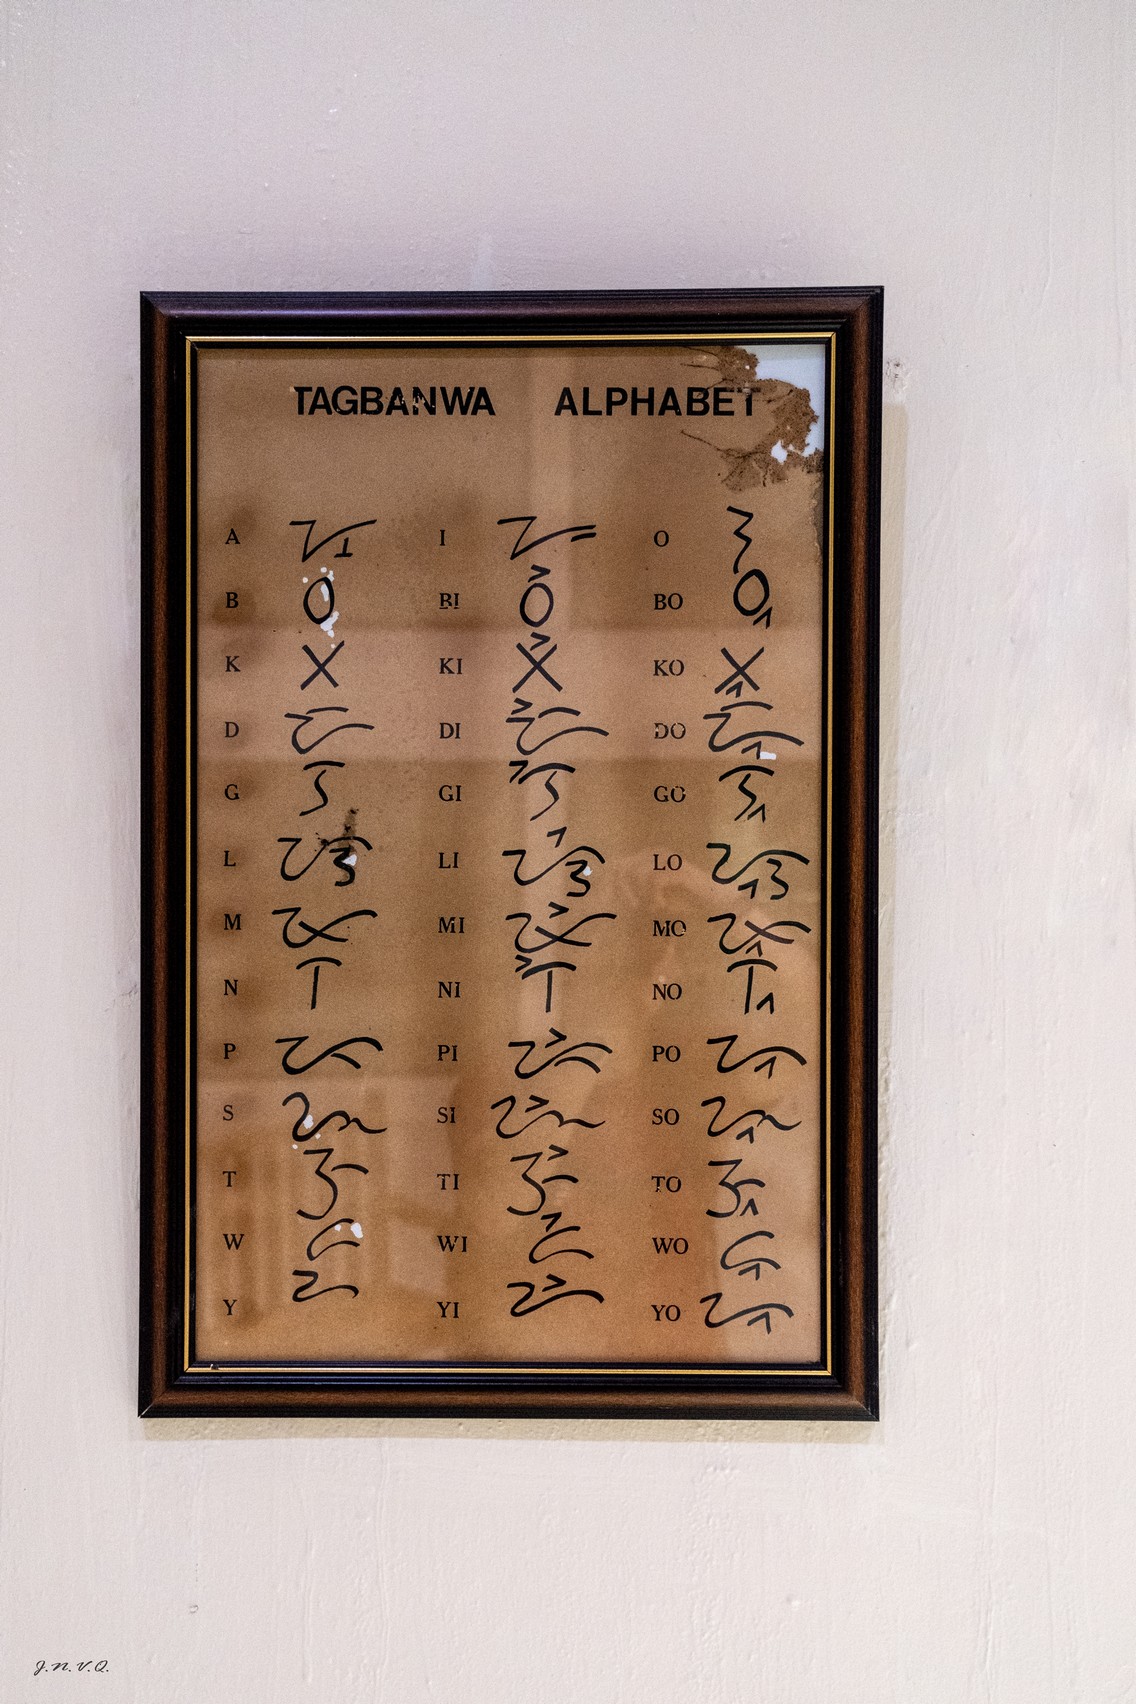 TAGBANWA ALPHABET
A ᝠ I ᝡ O ᝢ
B ᝪ BI ᝪᝲ BO ᝪᝳ
K ᝣ KI ᝣᝲ KO ᝣᝳ
D ᝧ DI ᝧᝲ DO ᝧᝳ
G ᝤ GI ᝤᝲ GO ᝤᝳ
L ᝮ LI ᝮᝲ LO ᝮᝳ
M ᝫ MI ᝫᝲ MO ᝫᝳ
N ᝨ NI ᝨᝲ NO ᝨᝳ
P ᝩ PI ᝩᝲ PO ᝩᝳ
S ᝰ SI ᝰᝲ SO ᝰᝳ
T ᝦ TI ᝦᝲ TO ᝦᝳ
W ᝯ WI ᝯᝲ WO ᝯᝳ
Y ᝬ YI ᝬᝲ YO ᝬᝳ
J.N.V.Q.